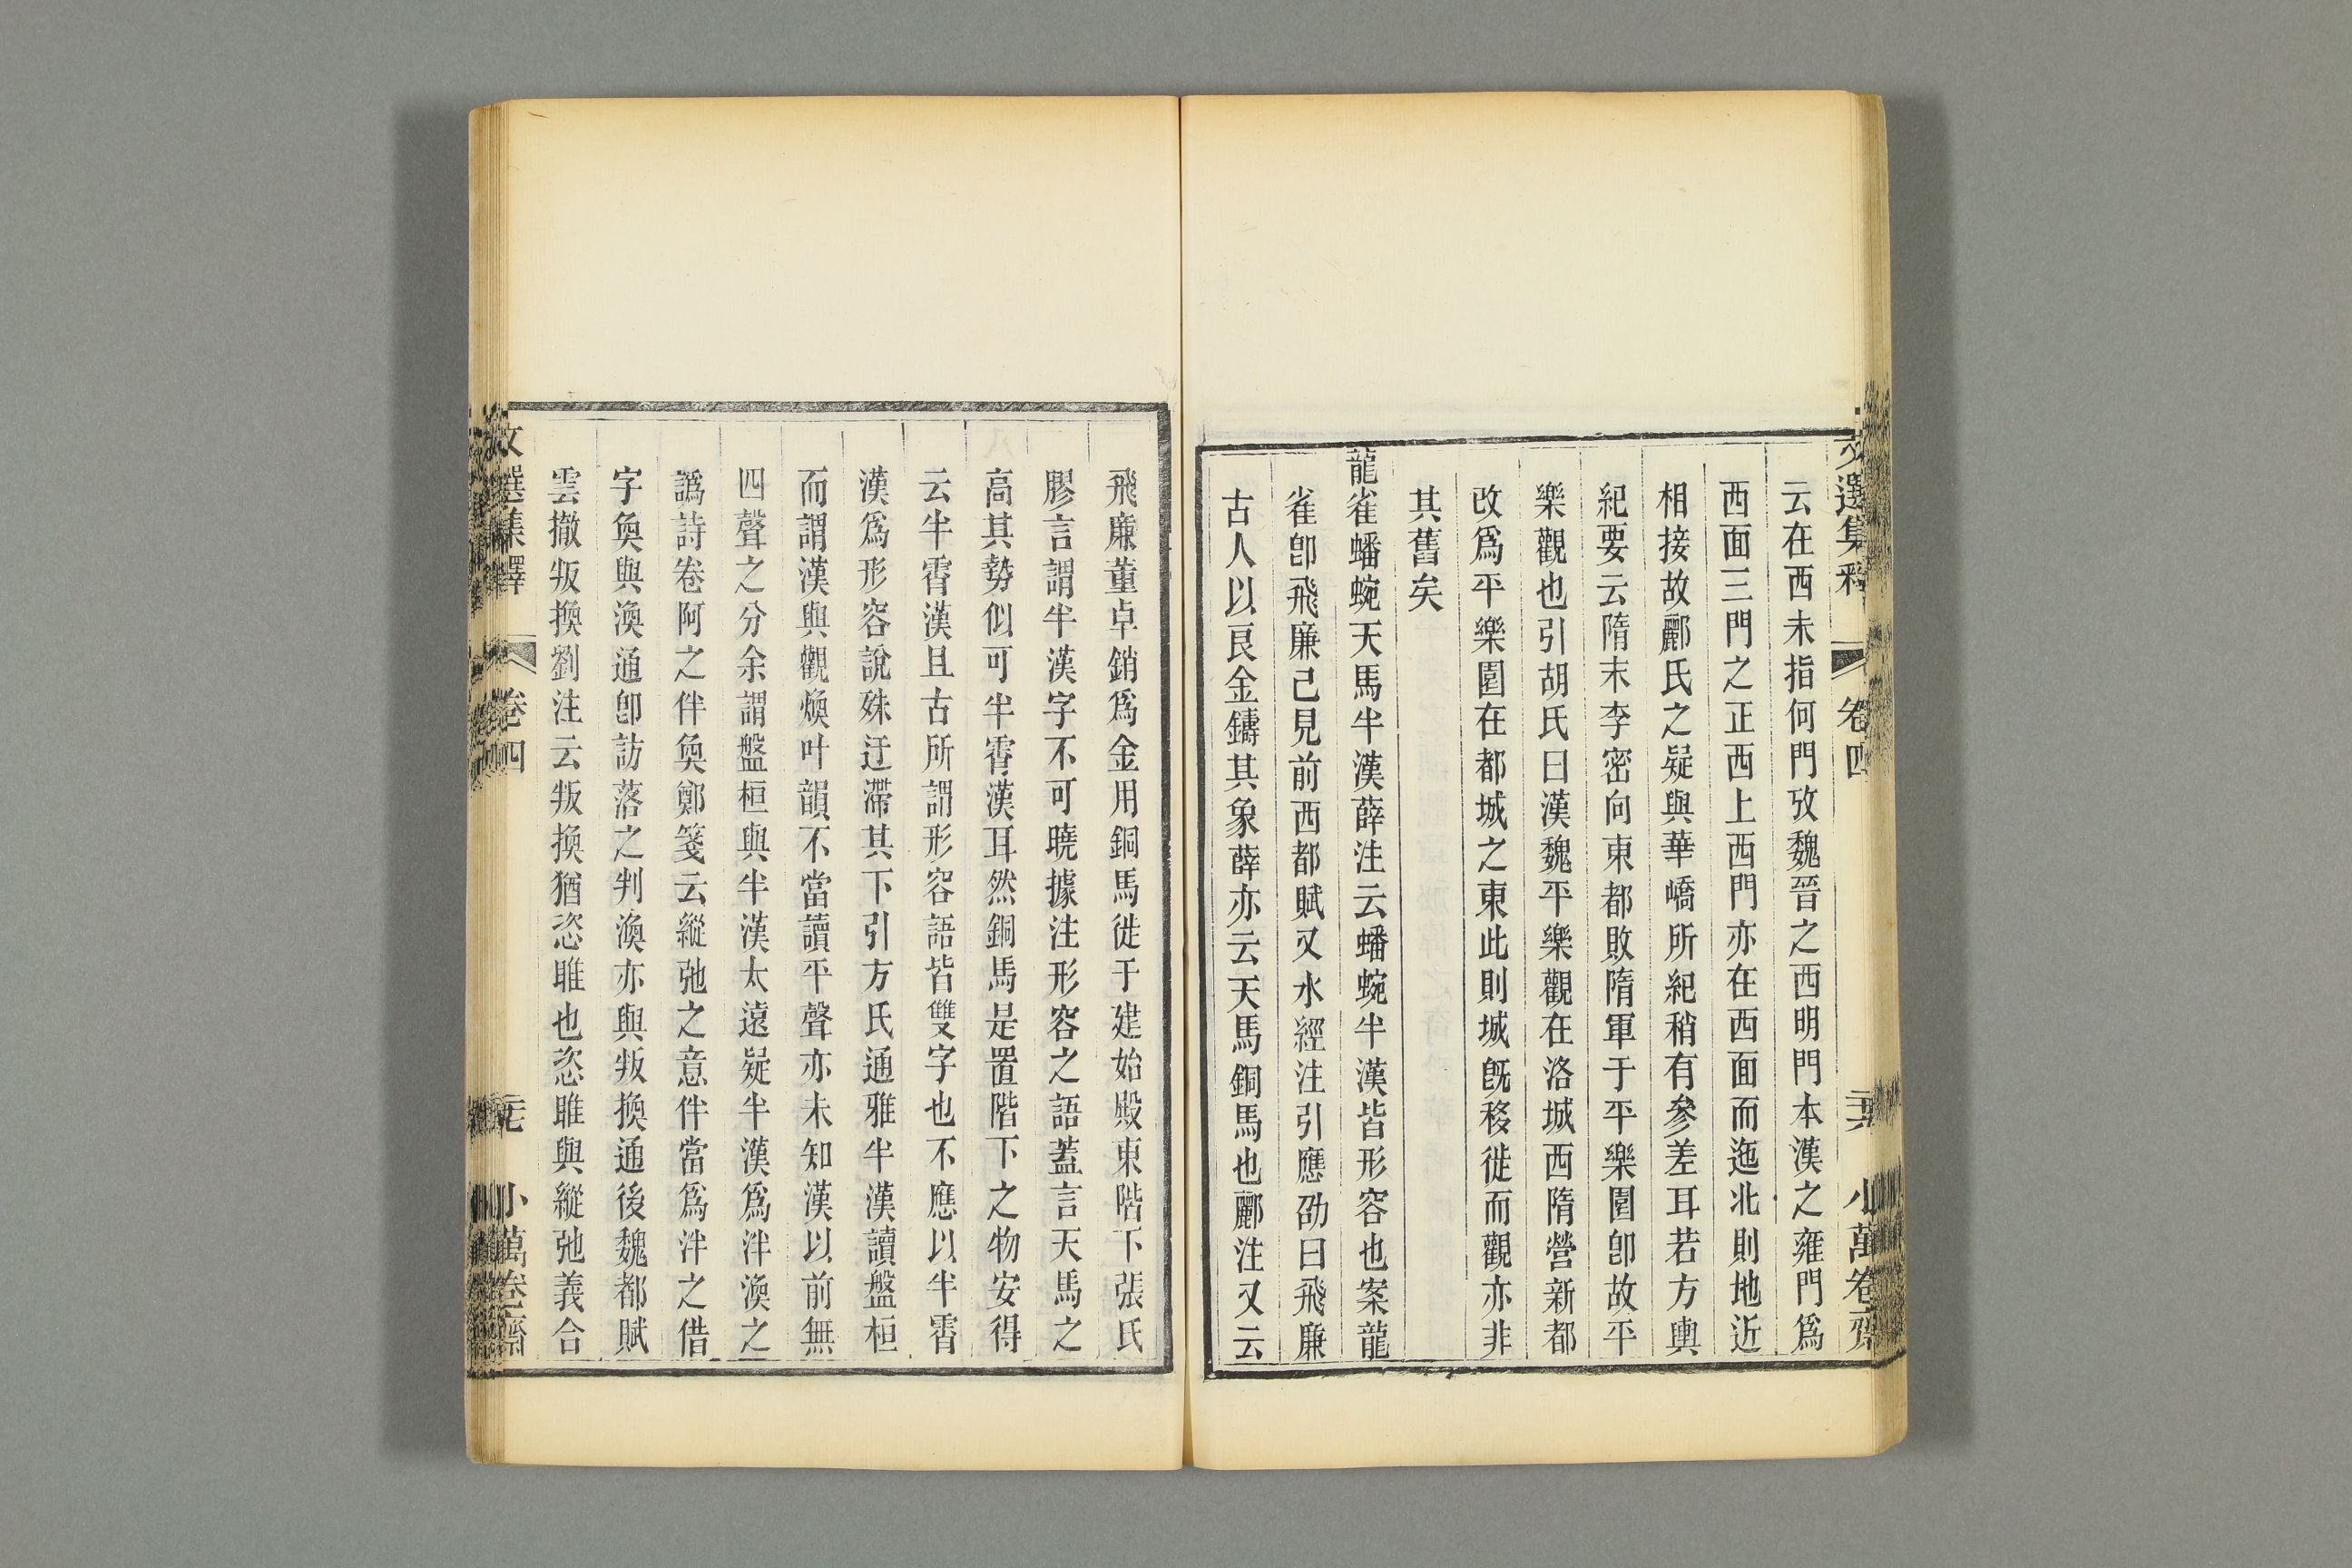 文選集釋　卷四　二十六　小萬卷齋
云在西未指何門攷魏晉之西明門本漢之雍門爲
西面三門之正西上西門亦在西面而迤北則地近
相接故酈氏之疑與華嶠所紀稍有參差耳若方輿
紀要云隋末李密向東都敗隋軍于平樂園卽故平
樂觀也引胡氏曰漢魏平樂觀在洛城西隋營新都
改爲平樂園在都城之東此則城旣移徙而觀亦非
其舊矣
龍雀蟠蜿天馬半漢薛注云蟠蜿半漢皆形容也案龍
雀卽飛廉己見前西都賦又水經注引應劭曰飛廉
古人以良金鑄其象薛亦云天馬銅馬也酈注又云
飛廉董卓銷爲金用銅馬徙于建始殿東階下張氏
膠言謂半漢字不可曉據注形容之語蓋言天馬之
高其勢似可半霄漢耳然銅馬是置階下之物安得
云半霄漢且古所謂形容語皆雙字也不應以半霄
漢爲形容說殊迂滯其下引方氏通雅半漢讀盤桓
而謂漢與觀煥叶韻不當讀平聲亦未知漢以前無
四聲之分余謂盤桓與半漢太遠疑半漢爲泮渙之
譌詩卷阿之伴奐鄭箋云縱弛之意伴當爲泮之借
字奐與渙通卽訪落之判渙亦與叛換通後魏都賦
雲撤叛換劉注云叛換猶恣睢也恣睢與縱弛義合
文選集釋　卷四　二十七　小萬卷齋